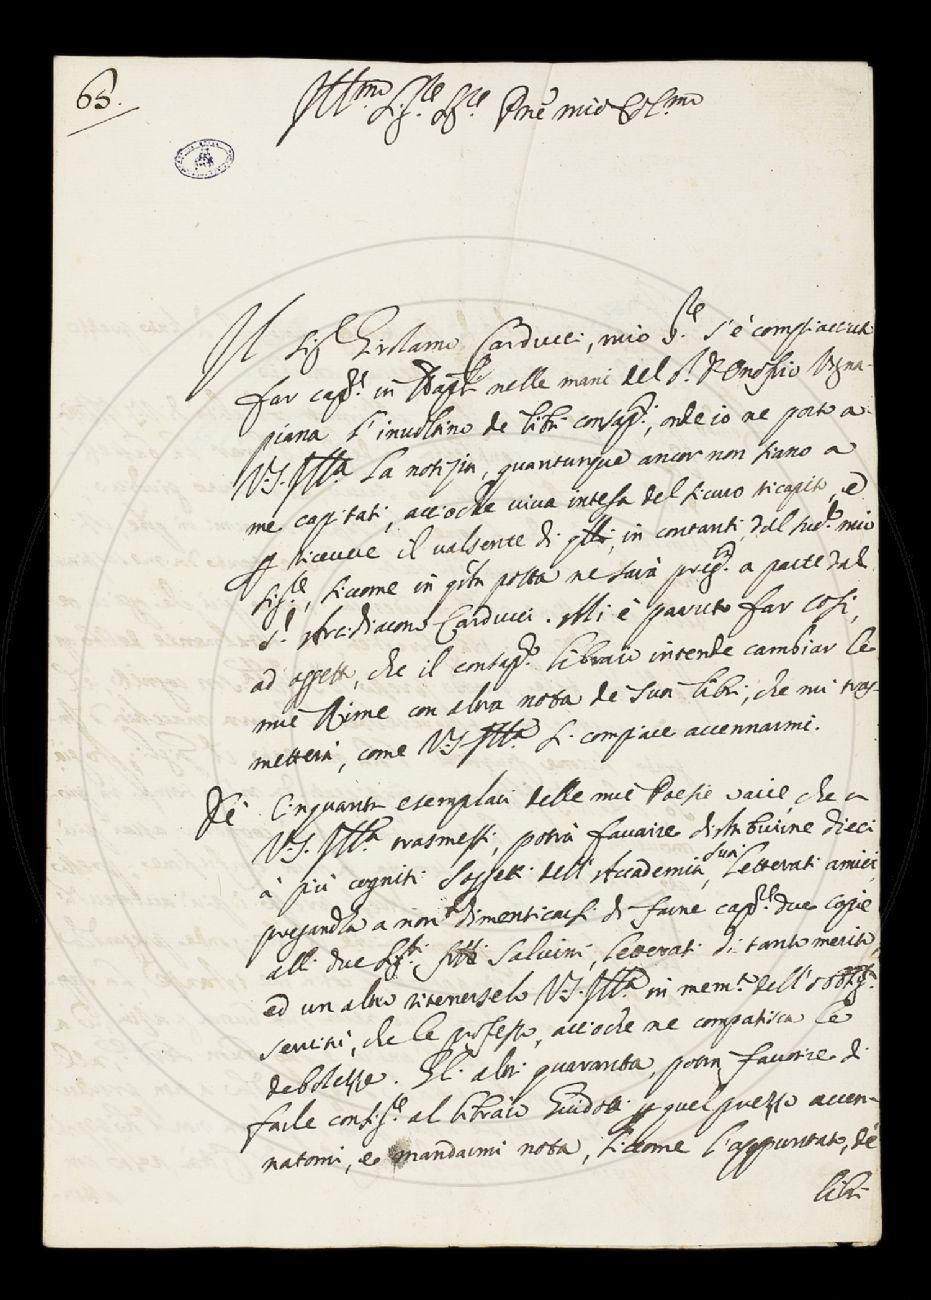 65.
Ill.mo Sig.re Sig.re P.ne mio Col.mo
Il Sig.r Girolamo Carducci, mio S.re s'è compiaciuto
far cap.r in Napoli nelle mani del S.r D. Onofrio Vgna-
piana l'involtino de libri consap.i, onde io ne porto a
V.S. Ill.ma la notizia, quantunque ancor non siano a
me capitati, acciochè viva intesa del sicuro ricapito, e
p ricevere il valsente di essi, in contanti, dal sud.o mio
Sig.re, siccome in q.sta posta ne sarà preg.o a parte dal
S.r Arcidiacono Carducci. Mi è paruto far così,
ad effetto, che il consap.o libraio intende cambiar le
mie Rime con altra nota de' suoi libri, che mi tras-
metterà, come V.S. Ill.ma si compiace accennarmi.
De' Cinquanta esemplari delle mie Poesie varie, che a
V.S. Ill.ma trasmessi, potrà favorire distribuirne dieci
à più cogniti Soggetti dell'Accademia, suoi letterati amici,
pregandola a non dimenticarsi di farne cap.r due copie
alli due Sig.ri Salvini, letterati di tanto merito,
ed un altro ritenerselo V.S. Ill.ma in mem.a dell'obblig.a
servitù, che le professo, acciochè ne compatisca le
debolezze. Gli altri quaranta, potrà favorire di
farle consig.re al libraio Guidotti p quel prezzo accen-
natomi, e mandarmi nota, siccome l'appuntato, de'
libri